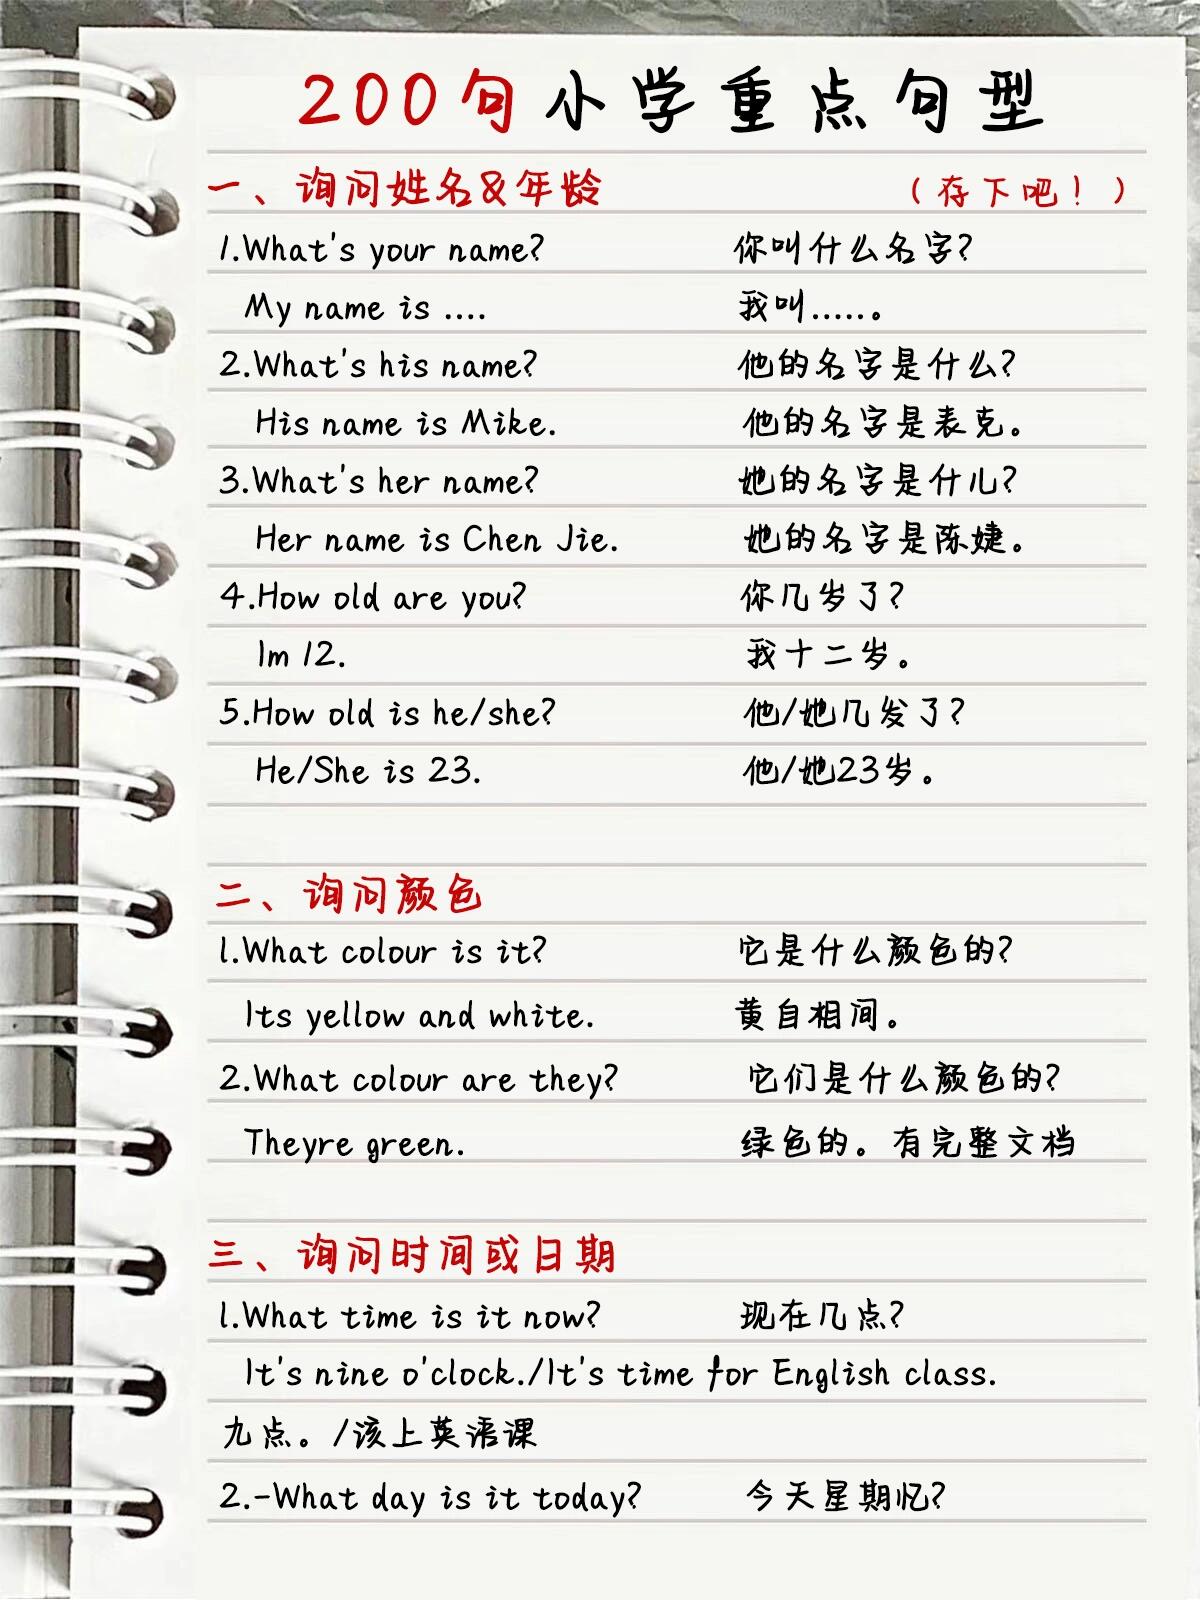 200句小学重点句型
一、询问姓名&年龄 （存下吧！）
1.What's your name? 你叫什么名字?
My name is .... 我叫.....。
2.What's his name? 他的名字是什么?
His name is Mike. 他的名字是表克。
3.What's her name? 她的名字是什儿?
Her name is Chen Jie. 她的名字是陈婕。
4.How old are you? 你几岁了?
Im 12. 我十二岁。
5.How old is he/she? 他/她几发了?
He/She is 23. 他/她23岁。
二、询问颜色
1.What colour is it? 它是什么颜色的?
Its yellow and white. 黄自相间。
2.What colour are they? 它们是什么颜色的?
Theyre green. 绿色的。有完整文档
三、询问时间或日期
1.What time is it now? 现在几点?
It's nine o'clock./It's time for English class.
九点。/该上英语课
2.-What day is it today? 今天星期忆?